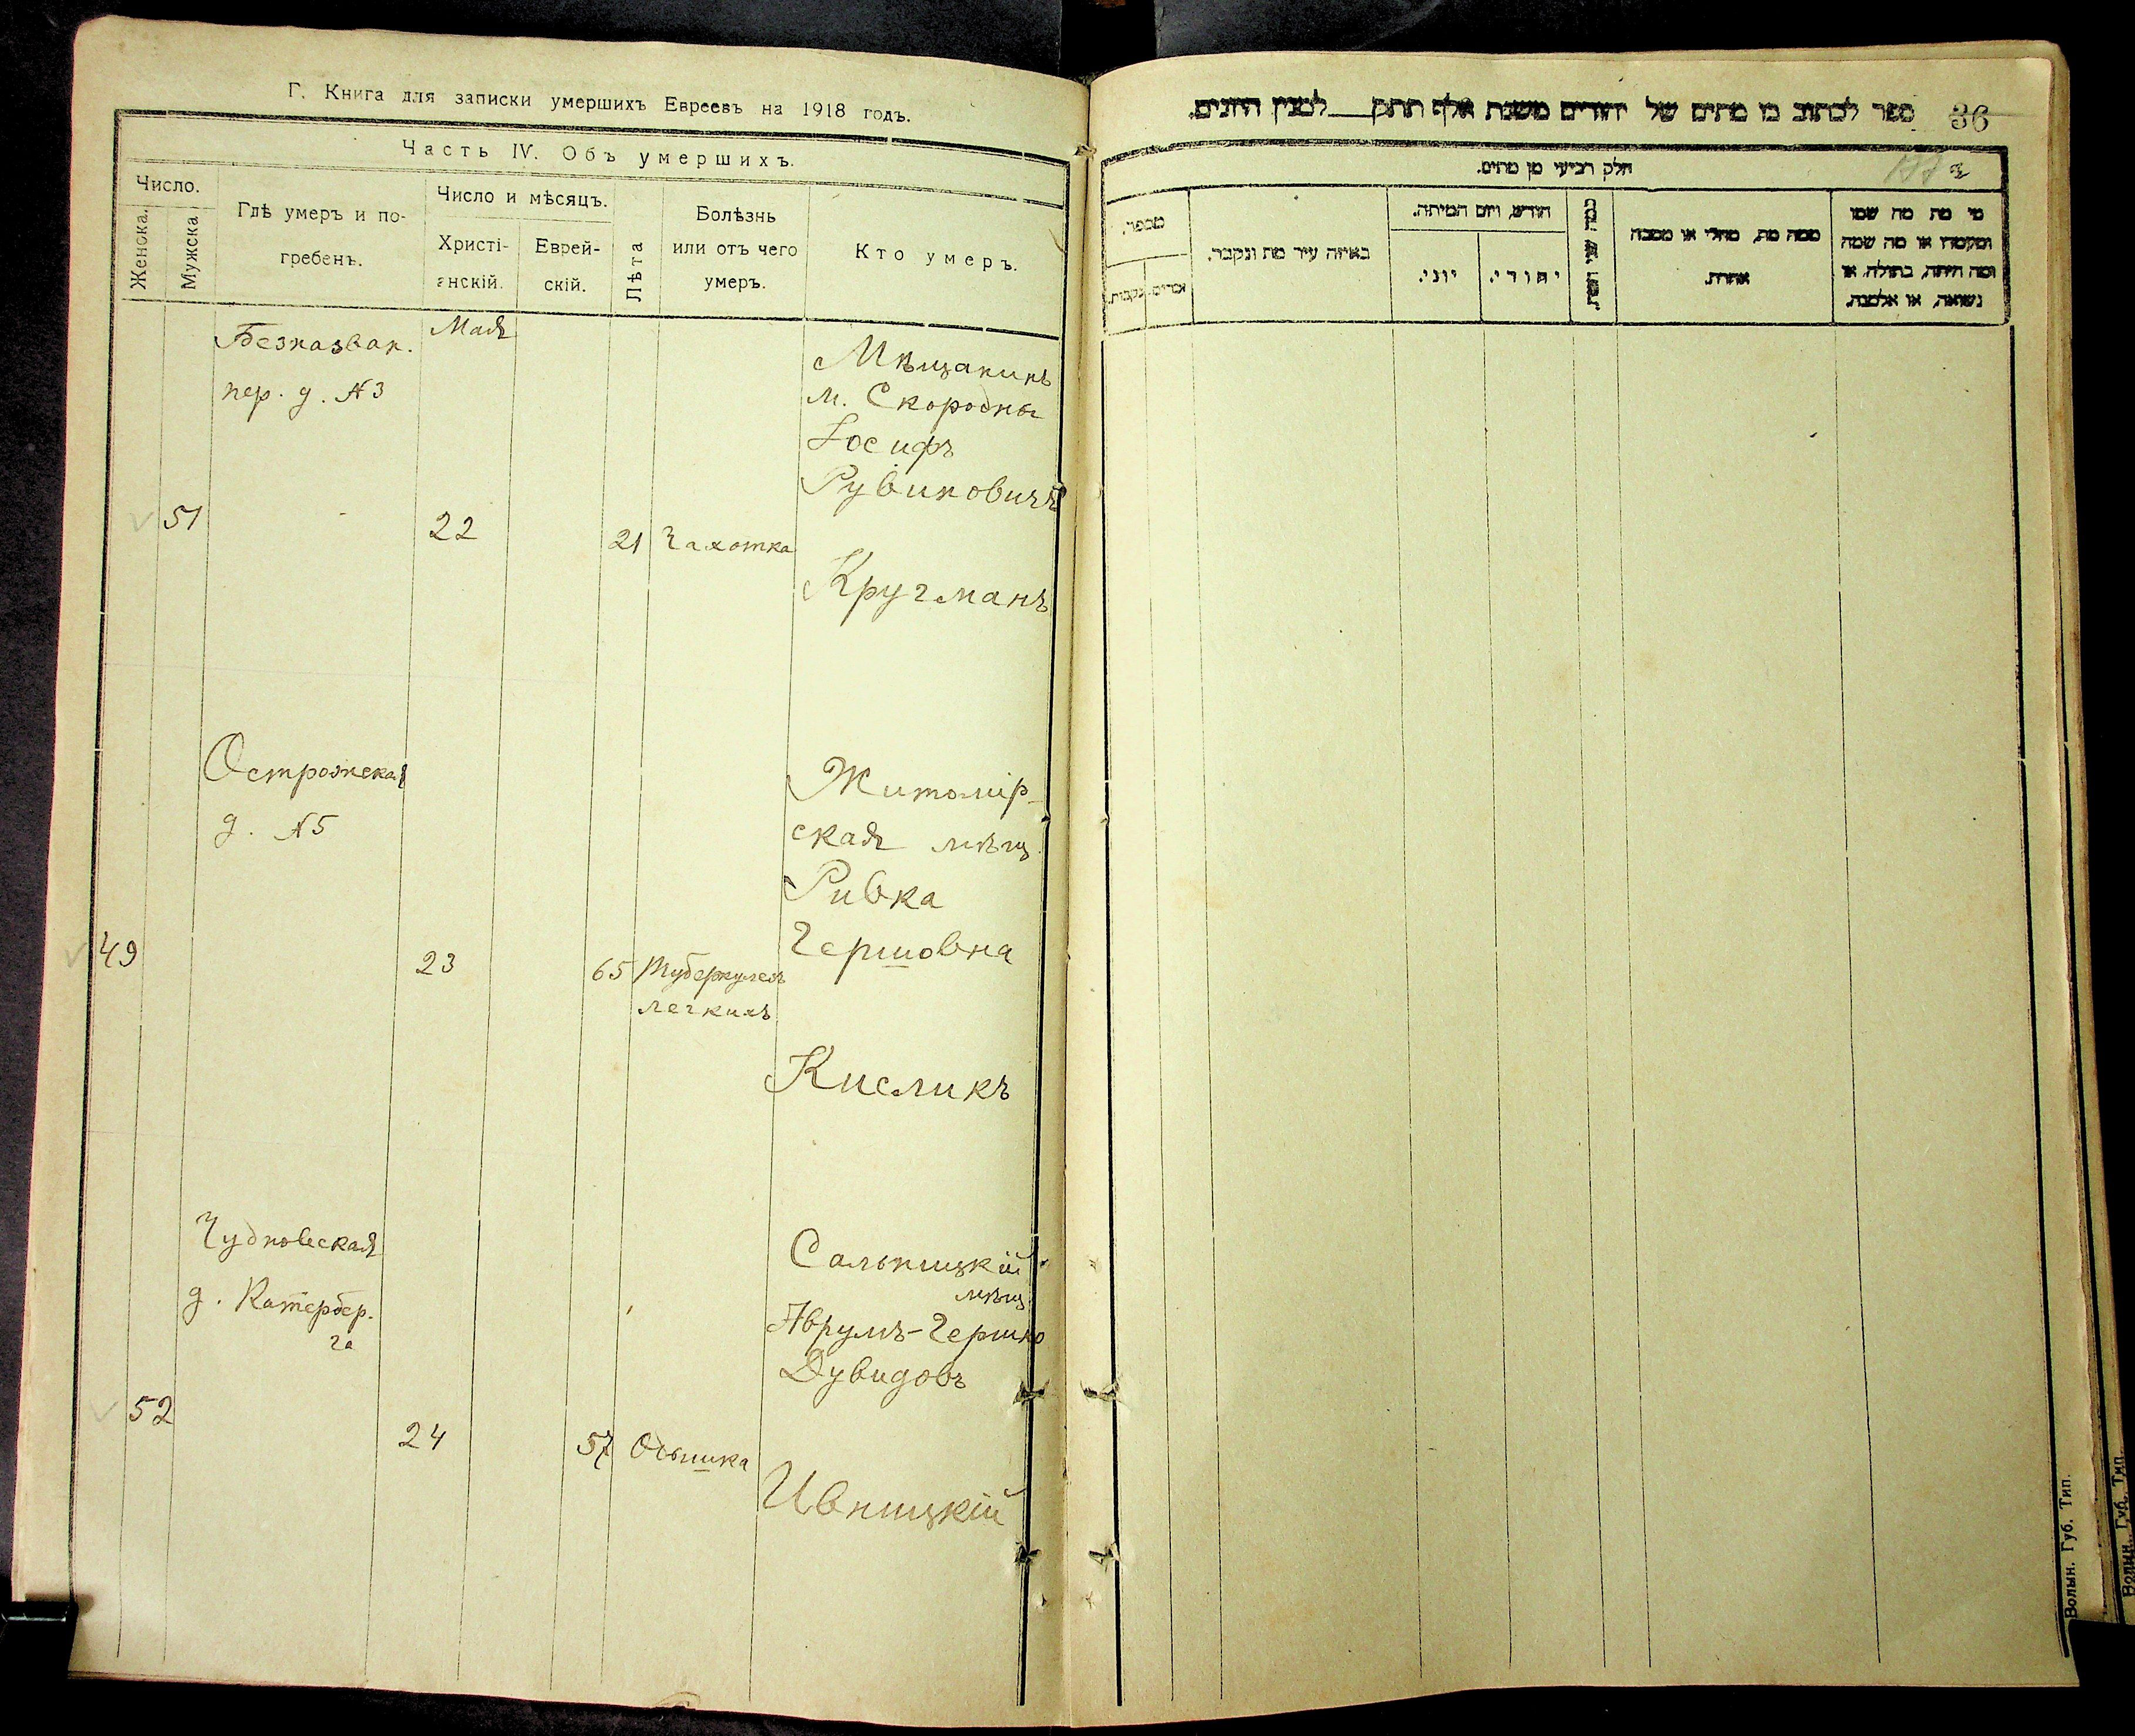 Г. Книга для записки умершихъ Евреевъ на 1918 годъ.
Часть IV. Объ умершихъ.
Число.
Женска.
Мужска.
Гдѣ умеръ и по-
гребенъ.
Число и мѣсяцъ.
Христі-
анскій.
Еврей-
скій.
Лѣта
Болѣзнь
или отъ чего
умеръ.
Кто умеръ.
Безназван.
пер. д. №3
Мая
Мѣщанинъ
м. Скородны
Іосифъ
Рувиновичъ
51
22
21
Чахотка
Кругманъ
Острожская
д. №5
Житомір-
ская мѣщ.
Ривка
Гершовна
49
23
65
Туберкулезъ
легкихъ
Кисликъ
Чудновская
д. Катербер.
га
Сальницкій
мѣщ.
Аврумъ-Гершко
Дувидовъ
52
24
57
Одышка
Ивницкій
ספר לכתוב בו מתים של יהודים משנת אלף תתק___למנין היונים.
36
חלק רביעי מן מתים.
מספר.
זכרים.
נקבות.
באיזה עיר מת ונקבר.
חודש, ויום המיתה.
יוני.
יהודי.
כמה שני המת.
ממה מת, מחלי או מסבה
אחרת.
מי מת מה שמו
ומקומו או מה שמה
ומה היתה, בתולה, או
נשואה, או אלמנה.
Волын. Губ. Тип.
Волын. Губ. Тип.